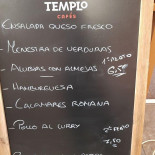 TEMPLO
CAFÉS
ENSALADA QUESO FRESCO
- MENESTRA DE VERDURAS
- ALUBIAS CON ALMEJAS
1º PLATO
6,50
- HAMBURGUESA
- CALAMARES ROMANA
- POLLO AL CURRY
2º PLATO
7,50